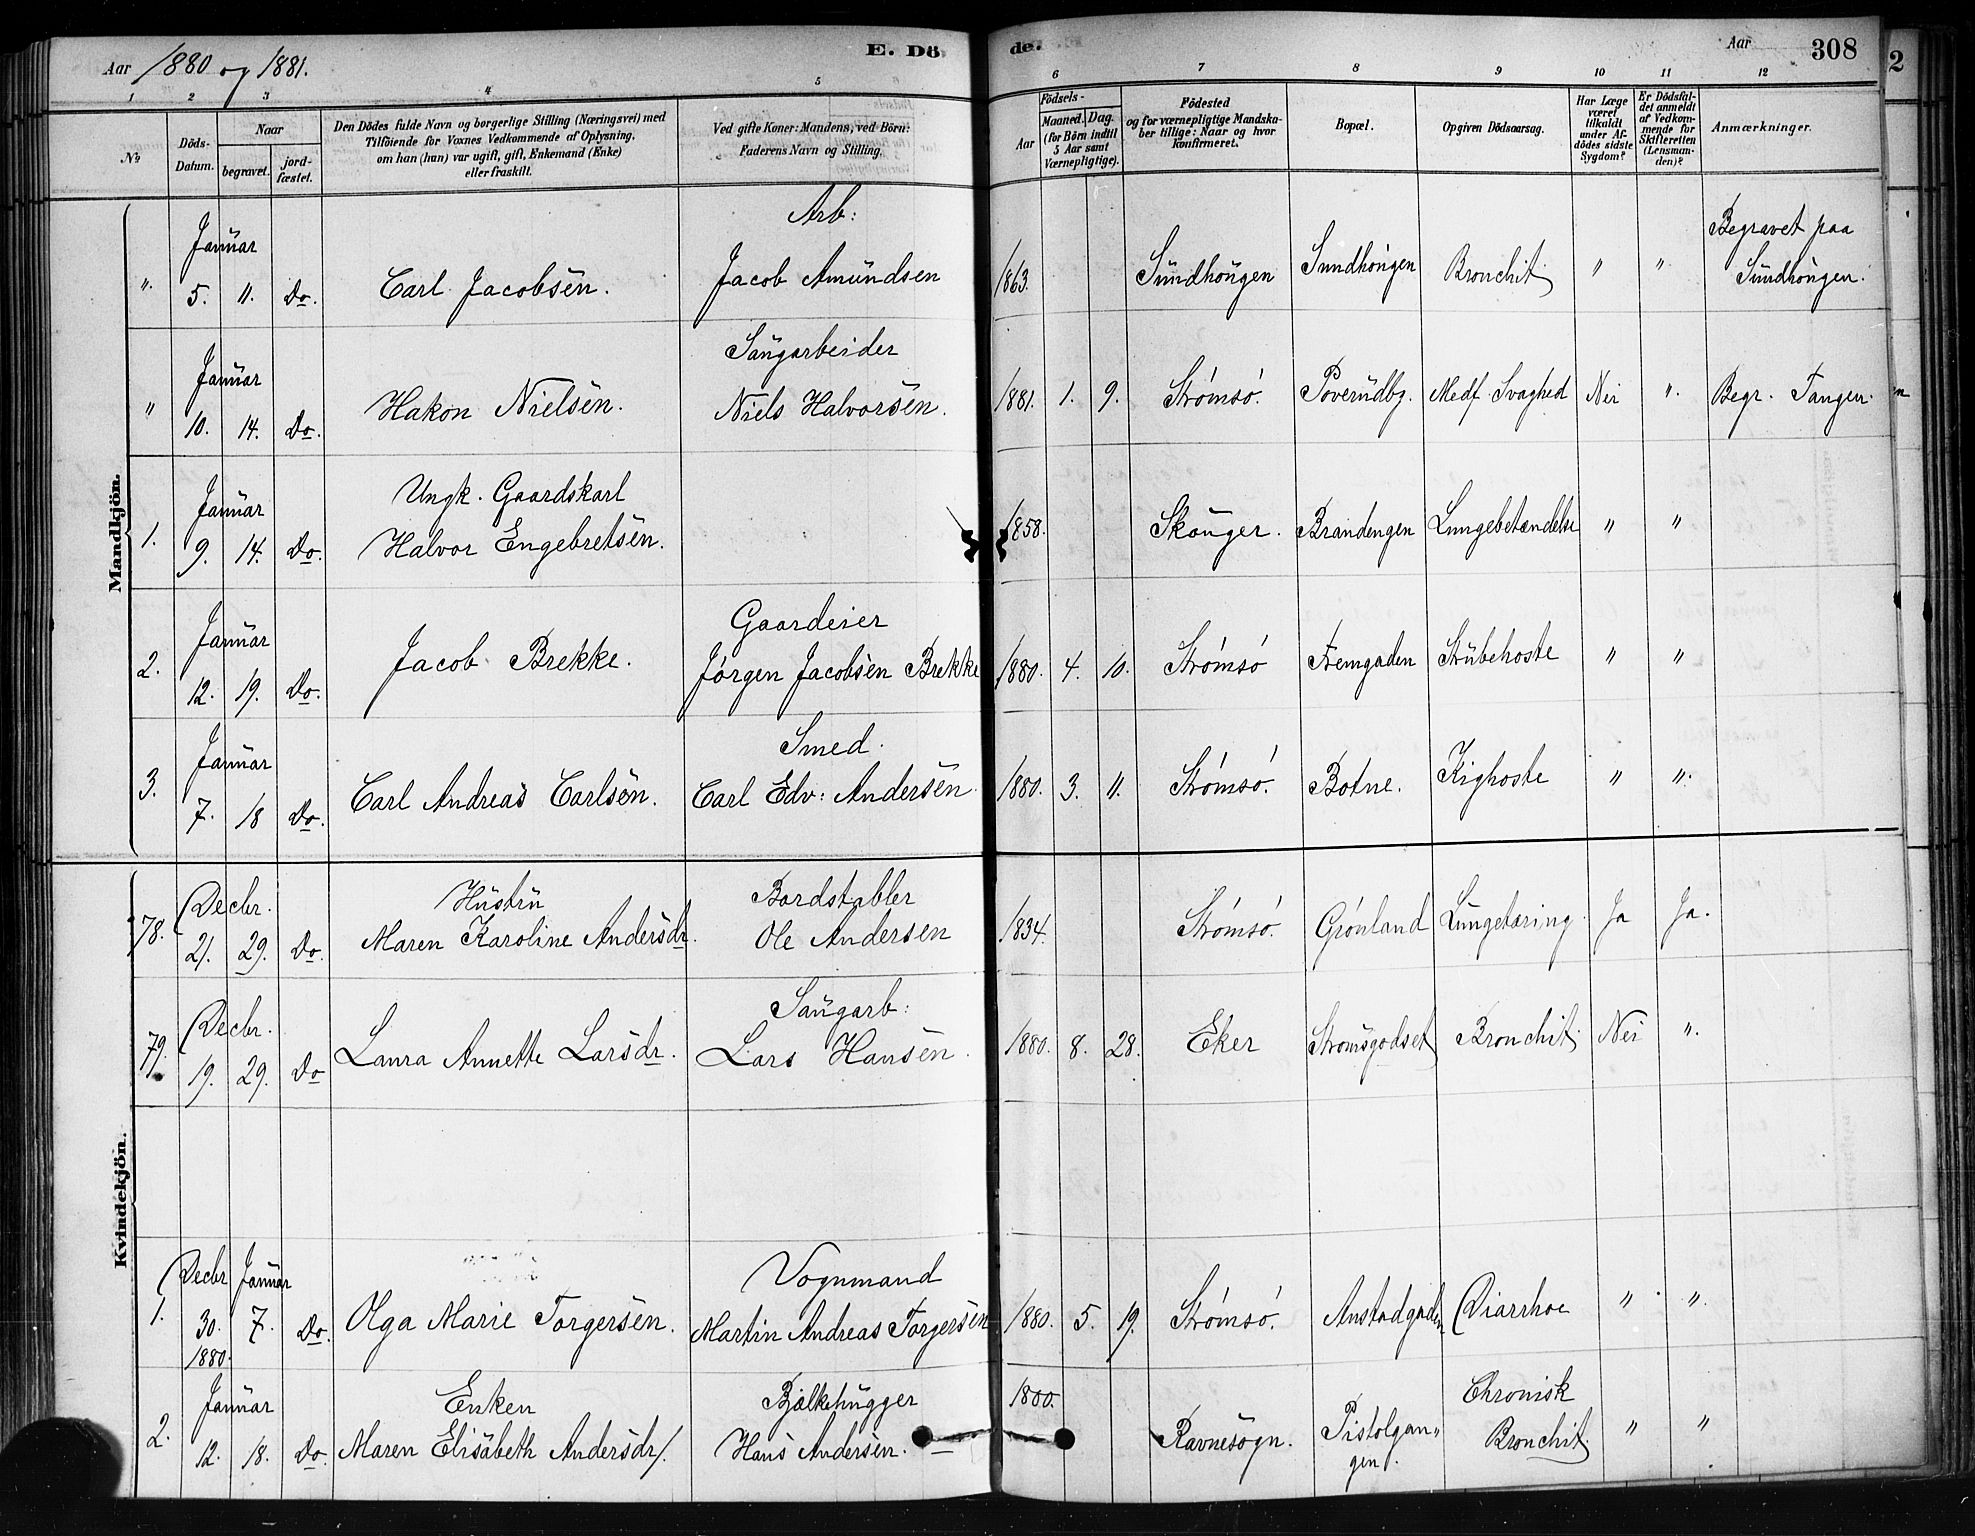 Aar 1880 og 1881.
E. Dö
de.
Aar
308
2
1 2 3 4 5 6 7 8 9 10 11 12
No
Döds-
Datum.
Naar
begravet.
jord-
fæstet.
Den Dödes fulde Navn og borgerlige Stilling (Næringsvei) med
Tilföiende for Voxnes Vedkommende af Oplysning,
om han (hun) var ugift, gift, Enkemand (Enke)
eller fraskilt.
Ved gifte Koner: Mandens, ved Börn:
Faderens Navn og Stilling.
Födsels-
Aar
Maaned.
Dag.
(for Börn indtil
5 Aar samt
Værnepligtige).
Födested
og for værnepligtige Mandska-
ber tillige: Naar og hvor
konfirmeret.
Bopæl.
Opgiven Dödsaarsag.
Har Læge
været
tilkaldt
under Af-
dödes sidste
Sygdom?
Er Dödsfal-
det anmeldt
af Vedkom-
mende for
Skifteretten
(Lensman-
den)?
Anmærkninger.
Mandkjön.
Januar
Arb:
Begravet paa
" 5. 11. Do. Carl Jacobsen. Jacob Amundsen 1863. Sundhougen Sundhougen Bronchit " " Sundhougen.
Januar
Saugarbeider
" 10. 14. Do. Hakon Nielsen. Niels Halvorsen. 1881. 1. 9. Strømsø. Poverudbg. Medf. Svaghed Nei " Begr. Tangen.
Januar
Ungk. Gaardskarl
1. 9. 14. Do. Halvor Engebretsen. 1858. Skouger. Brandengen Lungebetændelse " "
Januar
Gaardeier
2. 12. 19. Do. Jacob Brekke. Jørgen Jacobsen Brekke 1880. 4. 10. Strømsø Fremgaden Strubehoste " "
Januar
Smed.
3. 7. 18 Do. Carl Andreas Carlsen. Carl Edv: Andersen 1880. 3. 11. Strømsø. Botne. Kighoste " "
Kvindekjön.
Decbr.
Hustru
Bordstabler
78. 21. 29. Do. Maren Karoline Andersdr. Ole Andersen 1834. Strømsø. Grønland Lungetæring. Ja Ja.
Decbr.
Saugarb:
79. 19. 29. Do Laura Annette Larsdr. Lars Hansen. 1880. 8. 28. Eker Strømsgodset Bronchit Nei "
Decbr Januar
Vognmand
1. 30. 7. Do. Olga Marie Torgersen. Martin Andreas Torgersen 1880. 5. 19. Strømsø. Anstadgaden Diarrhoe " "
1880.
Januar
Enken
Bjælkehugger
1800.
Chronisk
2. 12. 18. Do. Maren Elisabeth Andersdr. Hans Andersen. Ravnesogn. Pistolgan"
gen. Bronchit. " "